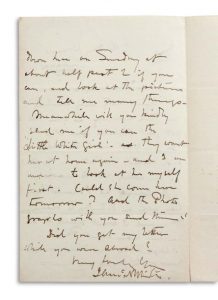 here on Sunday at
about half past 2 if you
can, and look at the pictures
and tell me many things -
Meanwhile will you kindly
send me if you can the
Little White Girl - as they want
her at home again - and I
to look at her myself
first. Could she come here
tomorrow? And the Photo
graphs with you and
Did you get my letter
while you were abroad?
Very